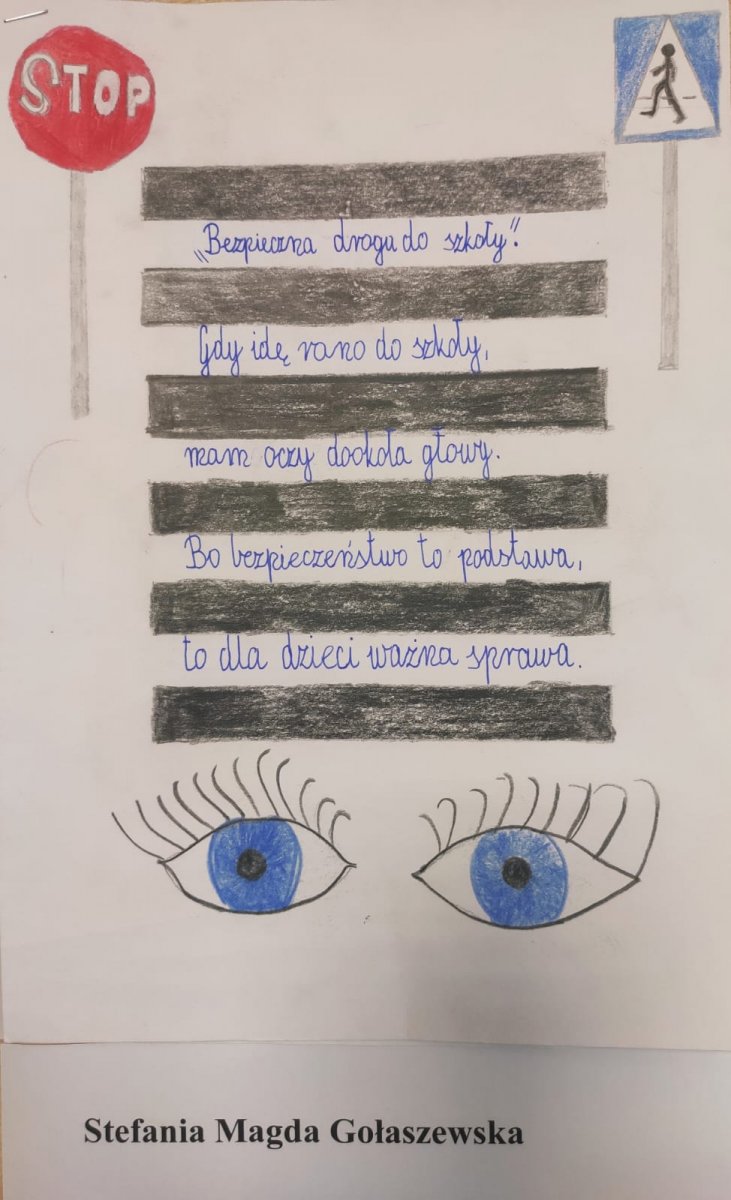 STOP
„Bezpieczna droga do szkoły".
Gdy idę rano do szkoły,
mam oczy dookoła głowy.
Bo bezpieczeństwo to podstawa,
to dla dzieci ważna sprawa.
Stefania Magda Gołaszewska